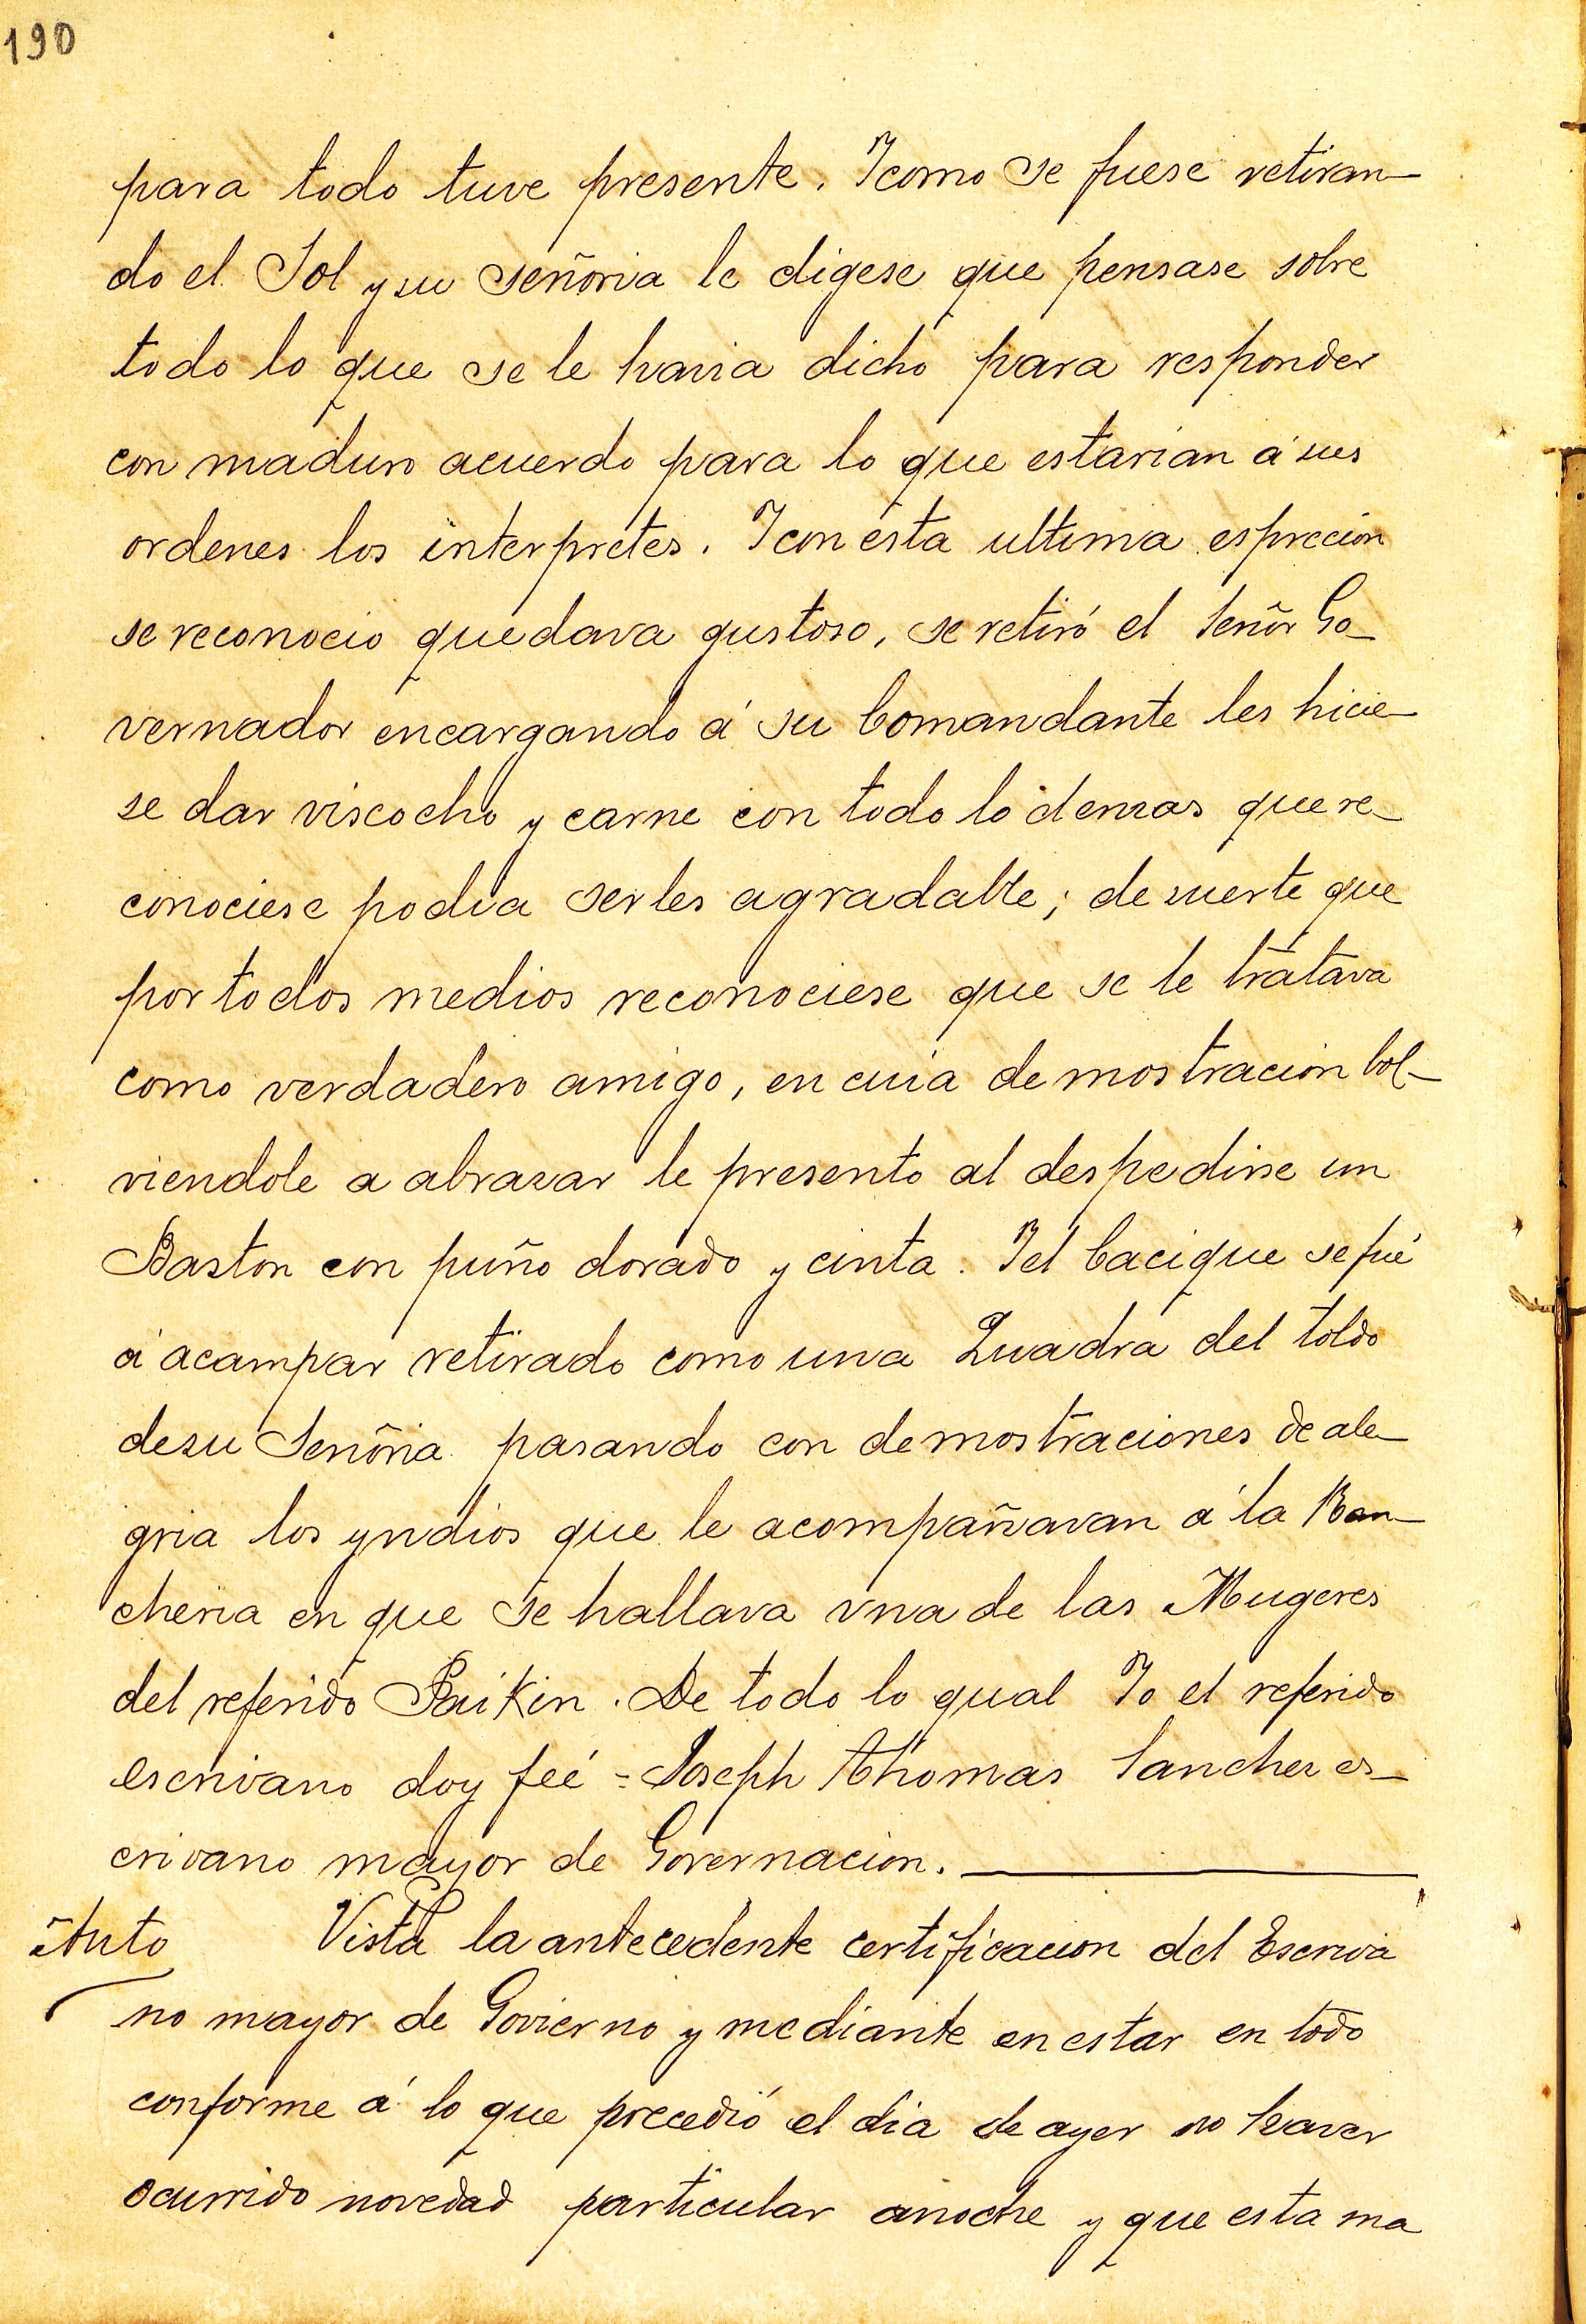 190
para todo tuve presente. Y como se fuese retiran-
do el Sol y su señoria le digese que pensase sobre
todo lo que se le havia dicho para responder
con maduro acuerdo para lo que estarian á sus
ordenes los interpretes. Y con esta ultima esprecion
se reconocio quedava gustoso, se retiró el Señor Go-
vernador encargando á su Comandante les hicie-
se dar viscocho y carne con todo lo demas que re-
conociese podia serles agradable; de suerte que
por todos medios reconociese que se le tratava
como verdadero amigo, en cuia demostracion bol-
viendole a abrazar le presento al despedirse un
Baston con puño dorado y cinta. Y el Cacique se fué
á acampar retirado como una Quadra del toldo
de su Señoria pasando con demostraciones de ale-
gria los yndios que le acompañavan á la Ran-
cheria en que se hallava vna de las Mugeres
del referido Paikin. De todo lo qual Yo el referido
escrivano doy feé = Joseph Thomas Sanchez es-
crivano mayor de Governacion.
Auto Vista la antecedente certificacion del Escriva
no mayor de Govierno y mediante en estar en todo
conforme á lo que precedió el dia de ayer no haver
ocurrido novedad particular anoche y que esta ma